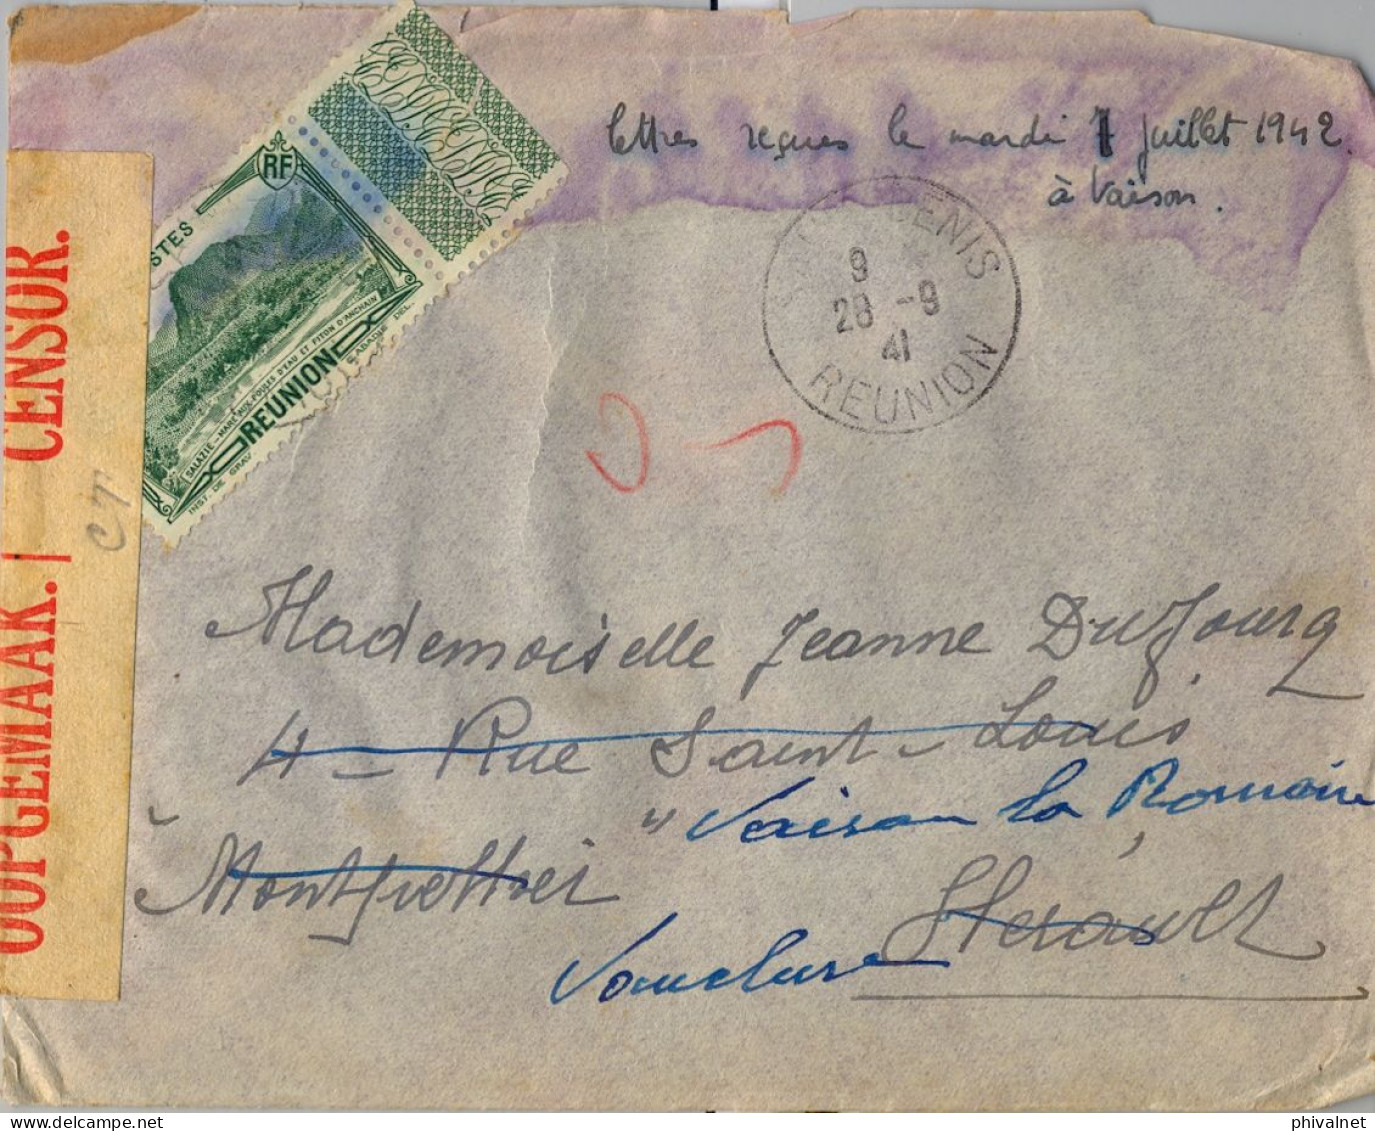 lettres reçues le mardi 7 juillet 1942.
à Vaison.
RF
POSTES
SALAZIE - MARE AUX POULES D'EAU ET PITON D'ANCHAIN
REUNION
INST. DE GRAV
CABASSE DEL.
SAINT DENIS
9
28 -9
41
REUNION
CENSOR.
OOPGEMAAK. |
CT
Mademoiselle Jeanne Dufourg
4 - Rue Saint-Louis
"Vaison la Romaine
Montpellier
Hérault
Vaucluse
phivalnet